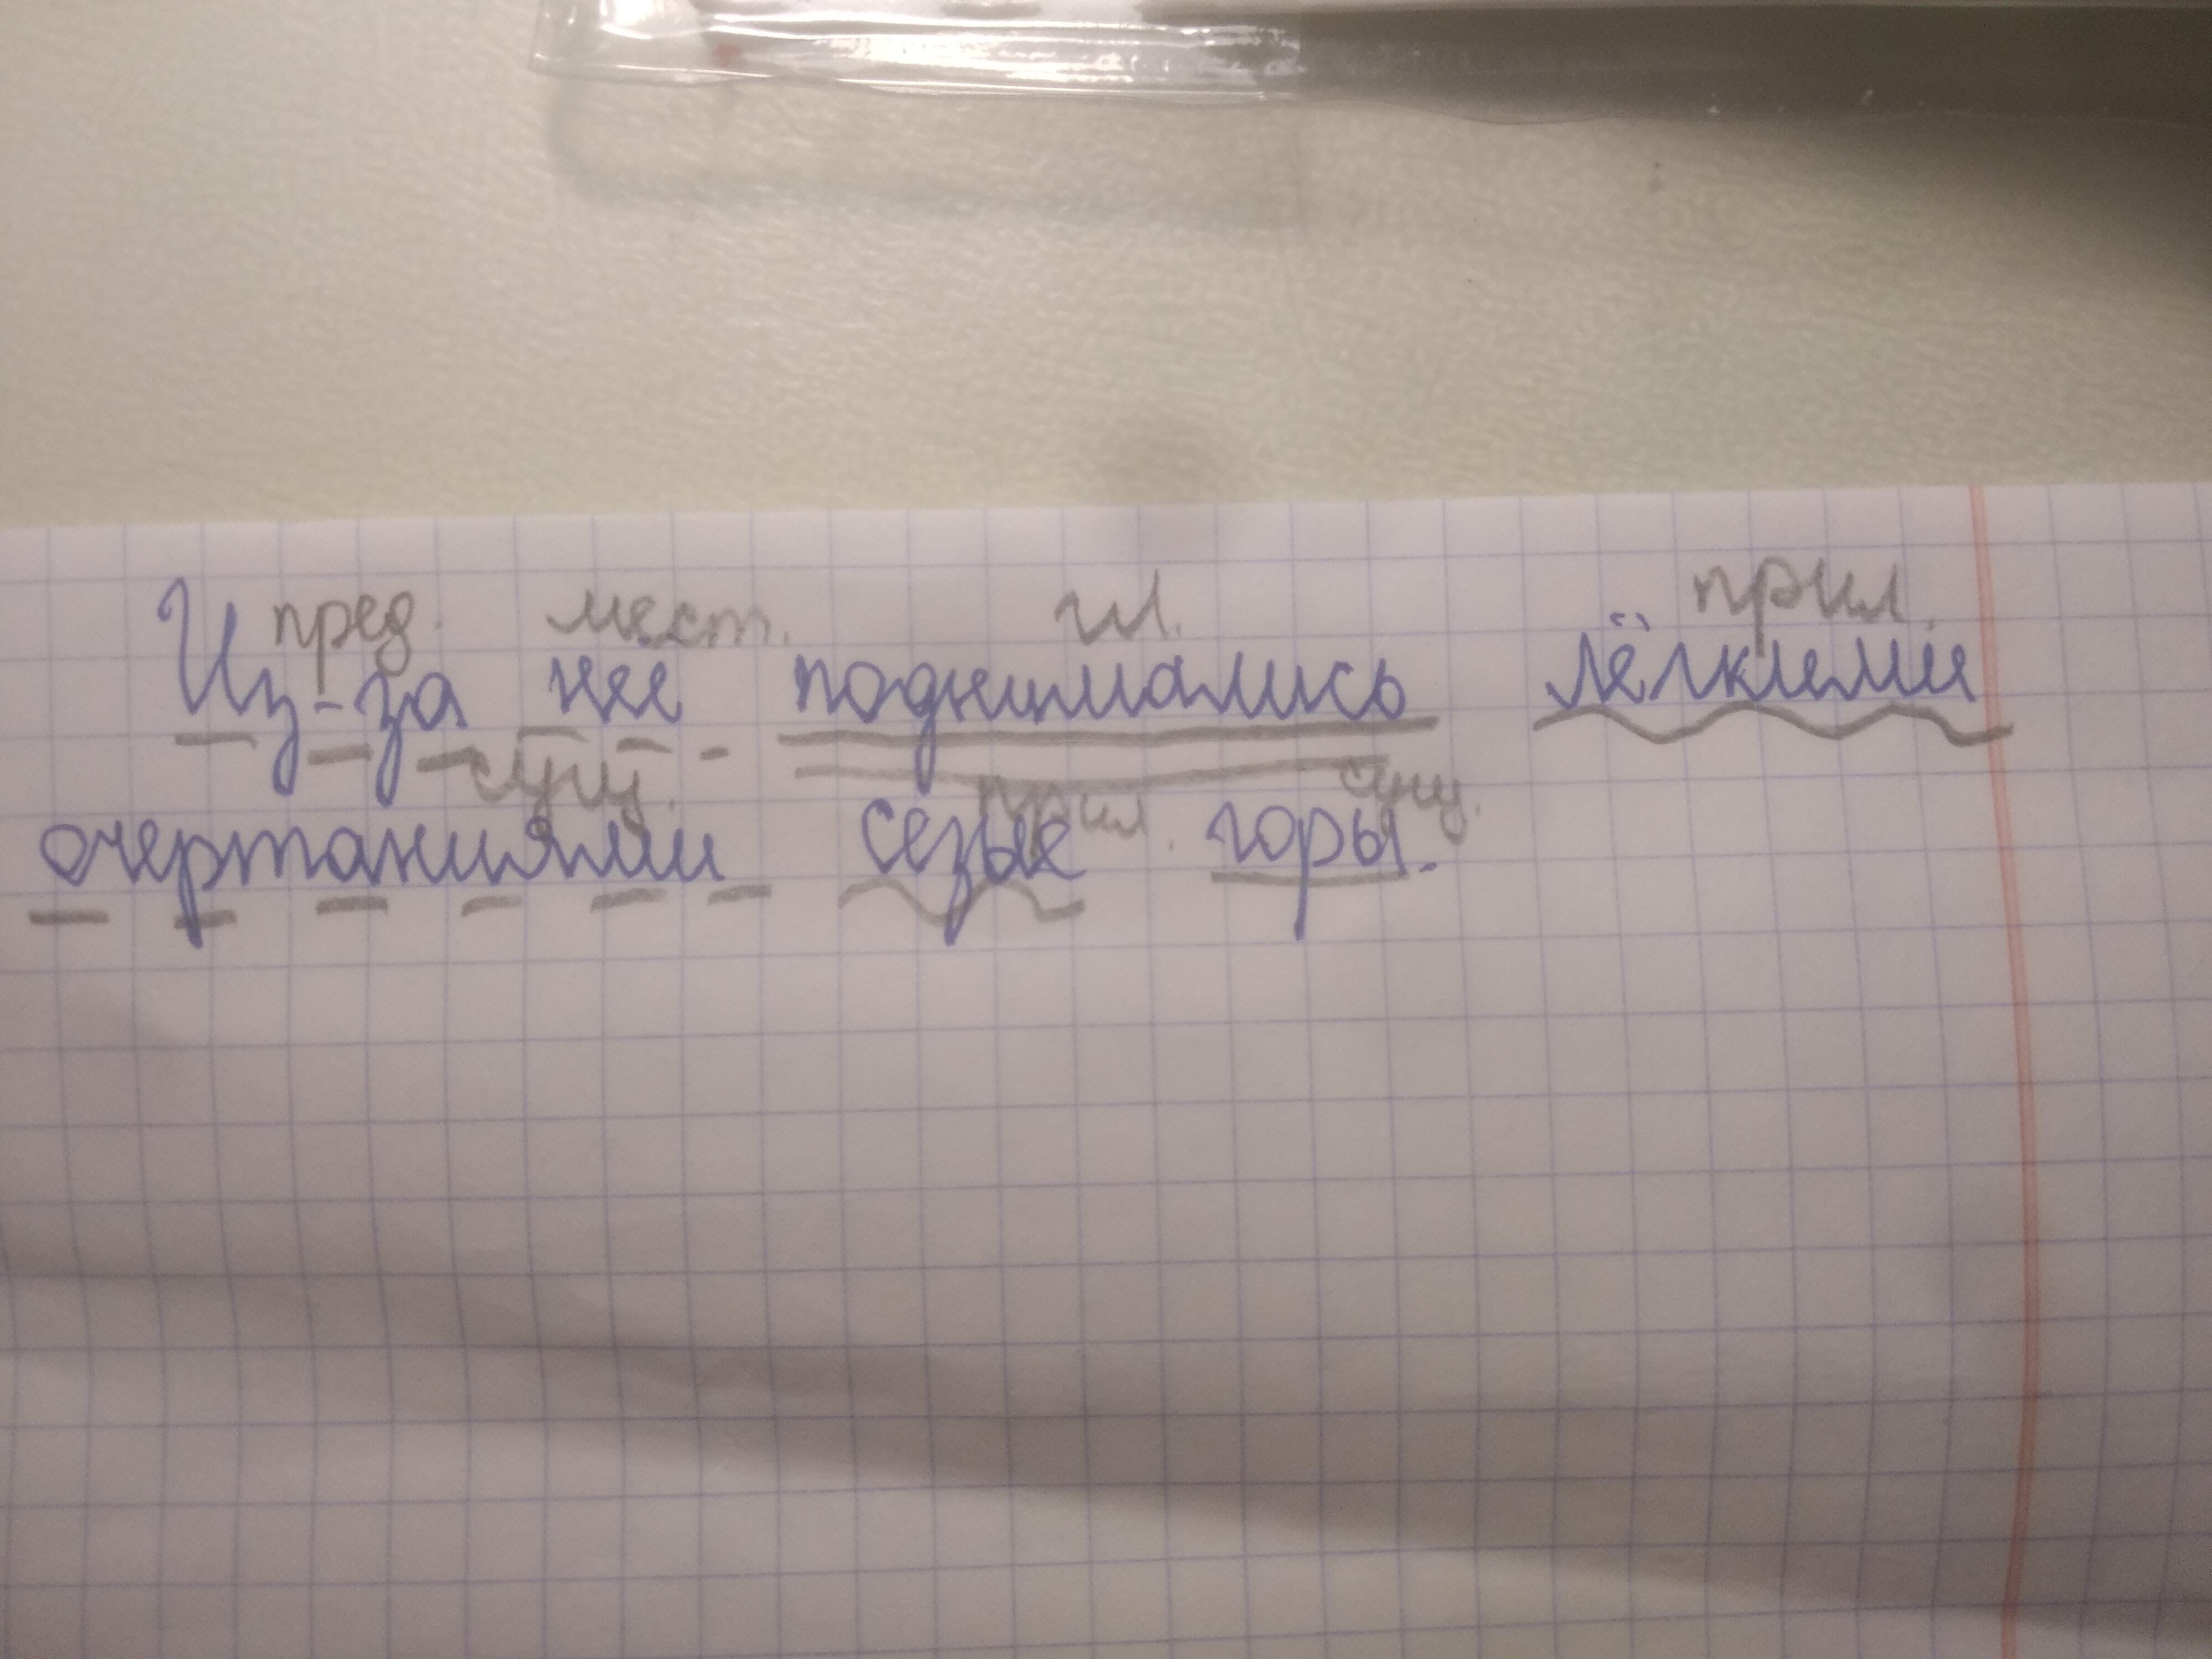 пред. мест. гл. прил.
Из-за нее поднимались лёгкими
сущ. прил. сущ.
очертаниями сезые горы.